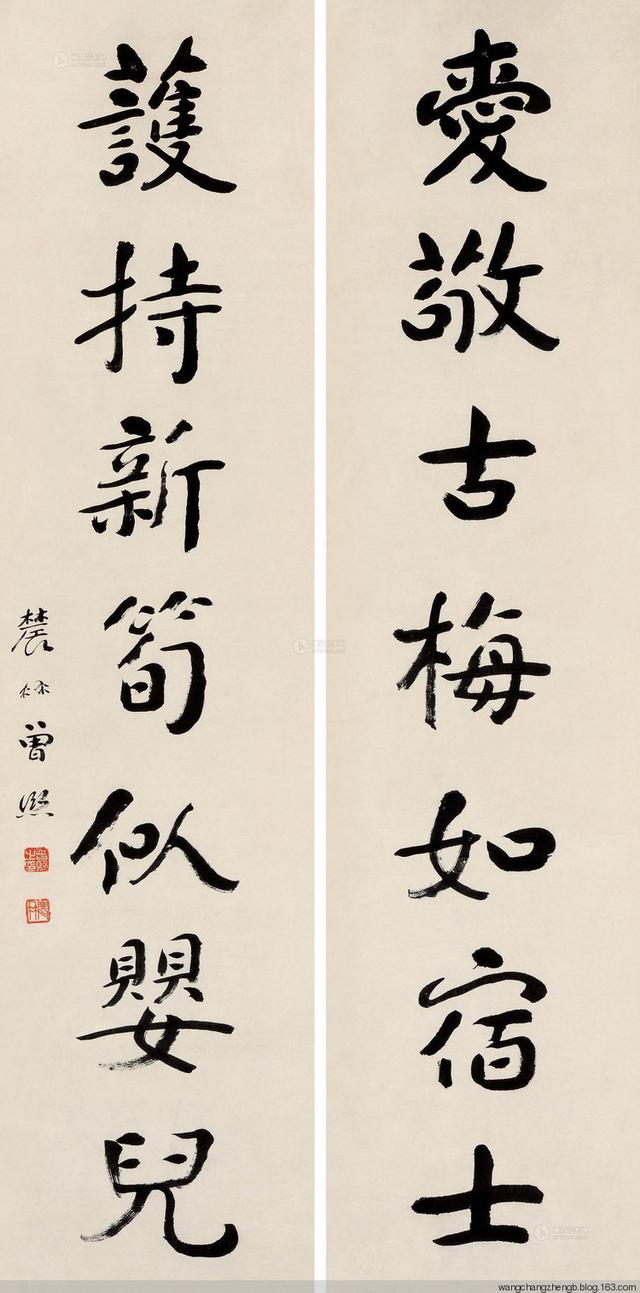 愛敬古梅如宿士
護持新筍似嬰兒
農髯曾熙
wangchangzhengb.blog.163.com